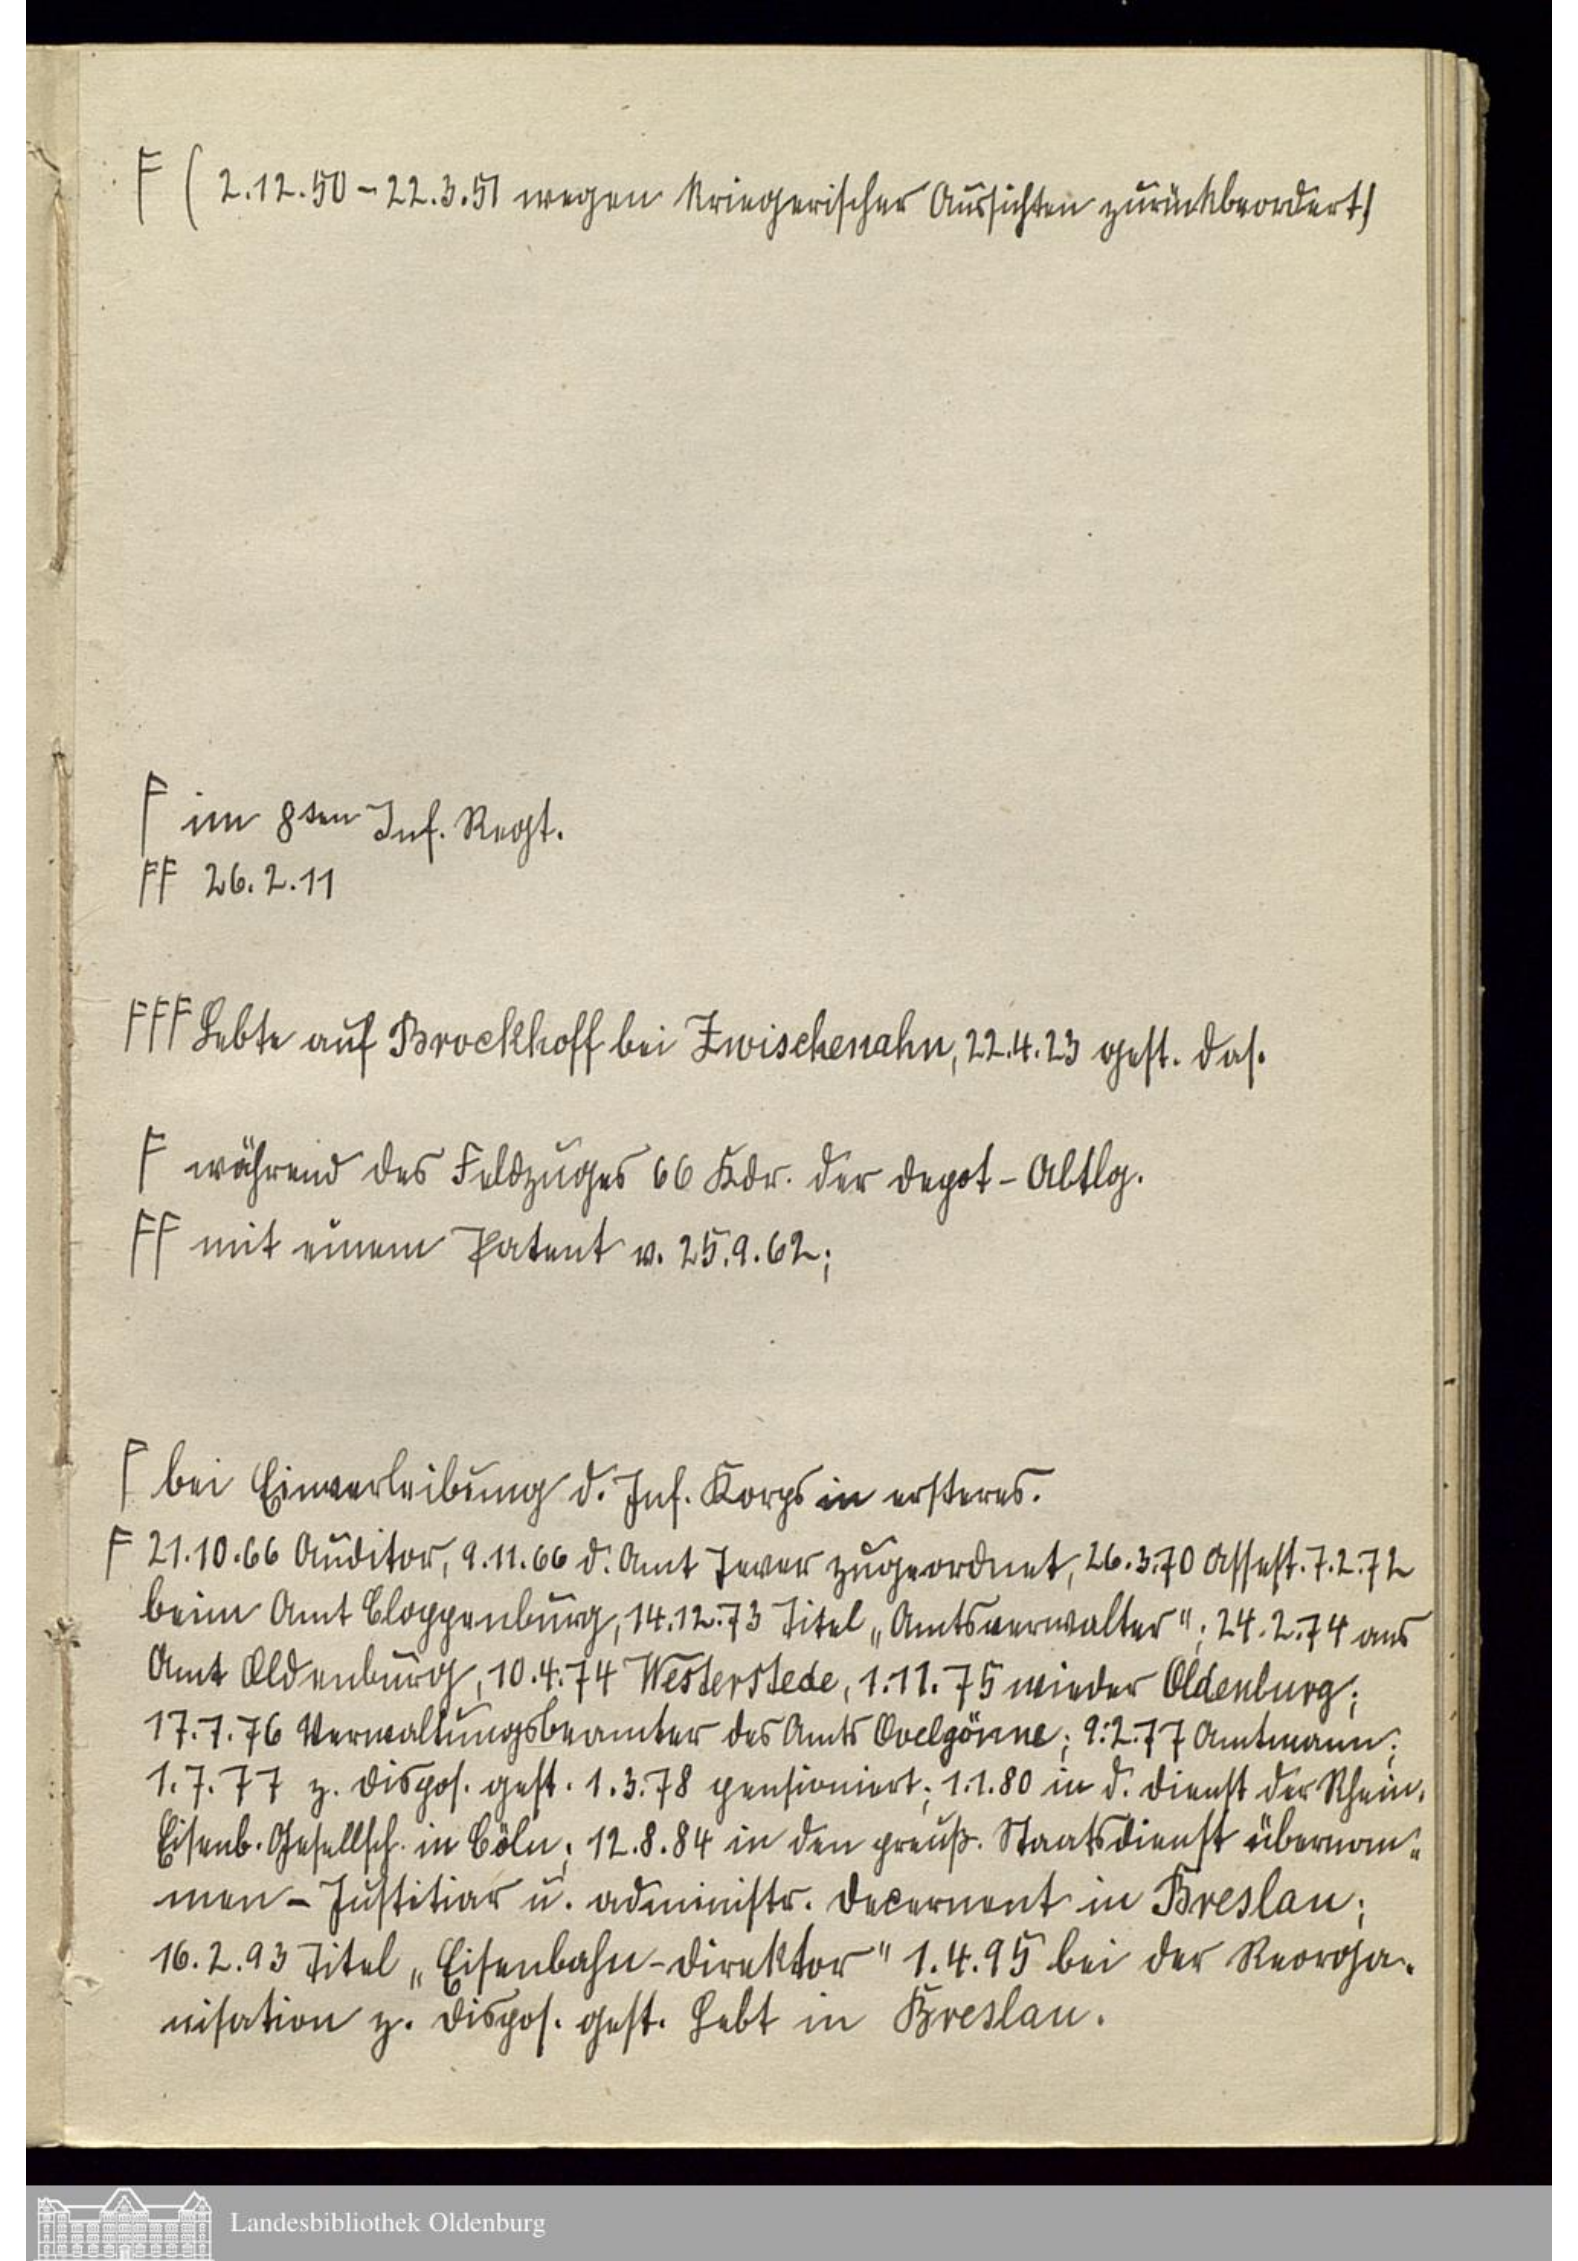 F (2.12.50 – 22.3.51 wegen kriegerischer Aussichten zurückbeordert)
F im 8ten Inf. Regt.
FF 26.2.11
FFF Lebte auf Brockhoff bei Zwischenahn, 22.4.23 gest. das.
F während des Feldzuges 66 Kdr. der Depot-Abtlg.
FF mit einem Patent v. 25.9.62;
F bei Einverleibung d. Inf. Korps in ersteres.
F 21.10.66 Auditor, 9.11.66 d. Amt Jever zugeordnet, 26.3.70 Assess. 7.2.72
beim Amt Cloppenburg, 14.12.73 Titel „Amtsverwalter"; 24.2.74 ans
Amt Oldenburg, 10.4.74 Westerstede, 1.11.75 wieder Oldenburg;
17.7.76 Verwaltungsbeamter des Amts Ovelgönne; 9.2.77 Amtmann;
1.7.77 z. Dispos. gest. 1.3.78 pensioniert; 1.1.80 in d. Dienst der Rhein.
Eisenb. Gesellsch. in Cöln; 12.8.84 in den preuß. Staatsdienst übernom=
men – Justitiar u. administr. Decernent in Breslau;
16.2.93 Titel „Eisenbahn-Direktor" 1.4.95 bei der Reorga-
nisation z. Dispos. gest. Lebt in Breslau.
Landesbibliothek Oldenburg